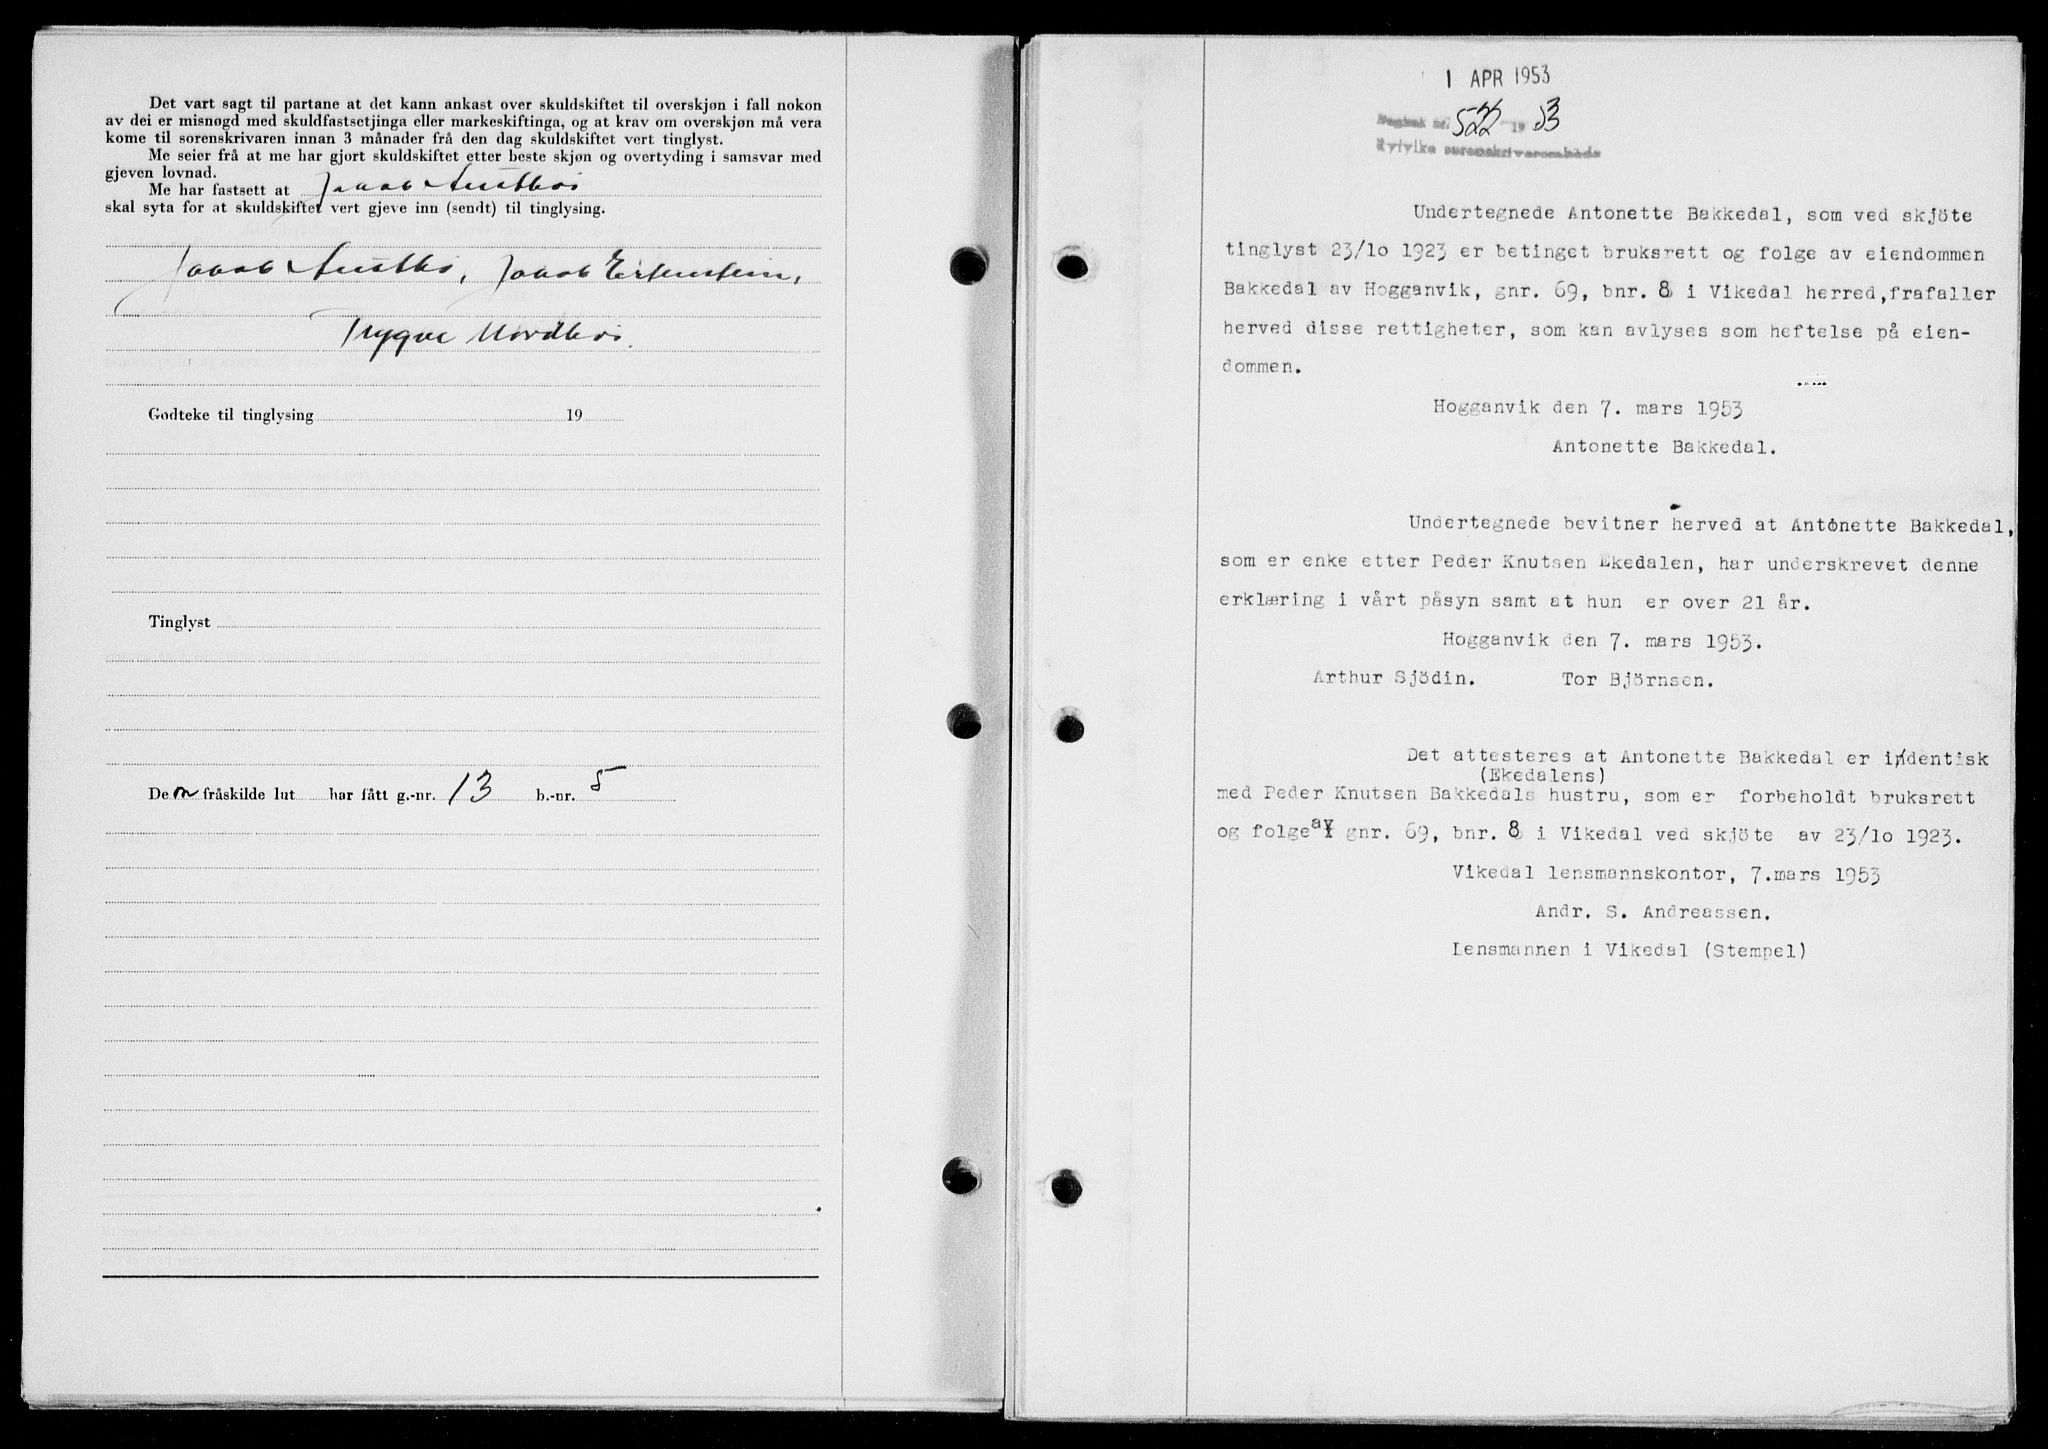 Det vart sagt til partane at det kann ankast over skuldskiftet til overskjøn i fall nokon
av dei er misnøgd med skuldfastsetjinga eller markeskiftinga, og at krav om overskjøn må vera
kome til sorenskrivaren innan 3 månader frå den dag skuldskiftet vert tinglyst.
Me seier frå at me har gjort skuldskiftet etter beste skjøn og overtyding i samsvar med
gjeven lovnad.
Me har fastsett at Jakob Austbø
skal syta for at skuldskiftet vert gjeve inn (sendt) til tinglysing.
Jakob Austbø, Jakob
Trygve Nordbø.
Godteke til tinglysing 19
Tinglyst
Den fråskilde lut har fått g.-nr. 13 b.-nr. 5
1 APR 1953
Dagbok nr. 522 19 53
Ryfylke sorenskriverembede
Undertegnede Antonette Bakkedal, som ved skjöte
tinglyst 23/10 1923 er betinget bruksrett og folge av eiendommen
Bakkedal av Hogganvik, gnr. 69, bnr. 8 i Vikedal herred, frafaller
herved disse rettigheter, som kan avlyses som heftelse på eien-
dommen.
Hogganvik den 7. mars 1953
Antonette Bakkedal.
Undertegnede bevitner herved at Antonette Bakkedal,
som er enke etter Peder Knutsen Ekedalen, har underskrevet denne
erklæring i vårt påsyn samt at hun er over 21 år.
Hogganvik den 7. mars 1953.
Arthur Sjödin. Tor Björnsen.
Det attesteres at Antonette Bakkedal er indentisk
(Ekedalens)
med Peder Knutsen Bakkedals hustru, som er forbeholdt bruksrett
og folge av gnr. 69, bnr. 8 i Vikedal ved skjöte av 23/10 1923.
Vikedal lensmannskontor, 7.mars 1953
Andr. S. Andreassen.
Lensmannen i Vikedal (Stempel)